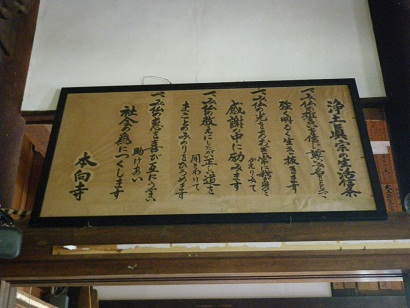 浄土真宗の生活信条
一、み仏の誓いを信じ尊いみ名をとなえつつ
強く明るく生き抜きます
一、み仏の光りをあおぎ常に我が身をかえりみて
感謝の中に励みます
一、み仏の教えにしたがい正しい道を聞きわけて
まことのみのりをひろめます
一、み仏の恵みを喜び互にうやまい助けあい
社会の為につくします
本向寺